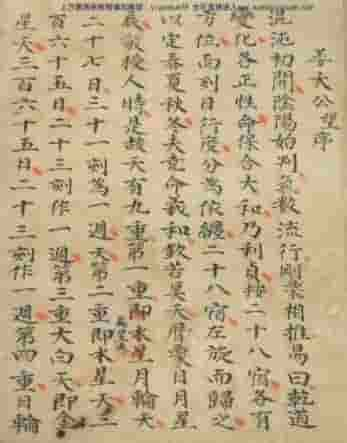 大公望序
混沌初開陰陽始判氣數流行剛柔相推易曰乾道
變化各正性命保合大和乃利貞按二十八宿各有
方位而刻日行度分為依纏二十八宿左旋而歸之
以定春夏秋冬大堯命羲和欽若昊天曆象日月星
辰敬授人時是故天有九重第一重即本星月輪天
二十七日三十一刻為一週天第二重即本星天三
百六十五日二十三刻作一週第三重大白天即金
星天三百六十五日二十三刻作一週第四重日輪